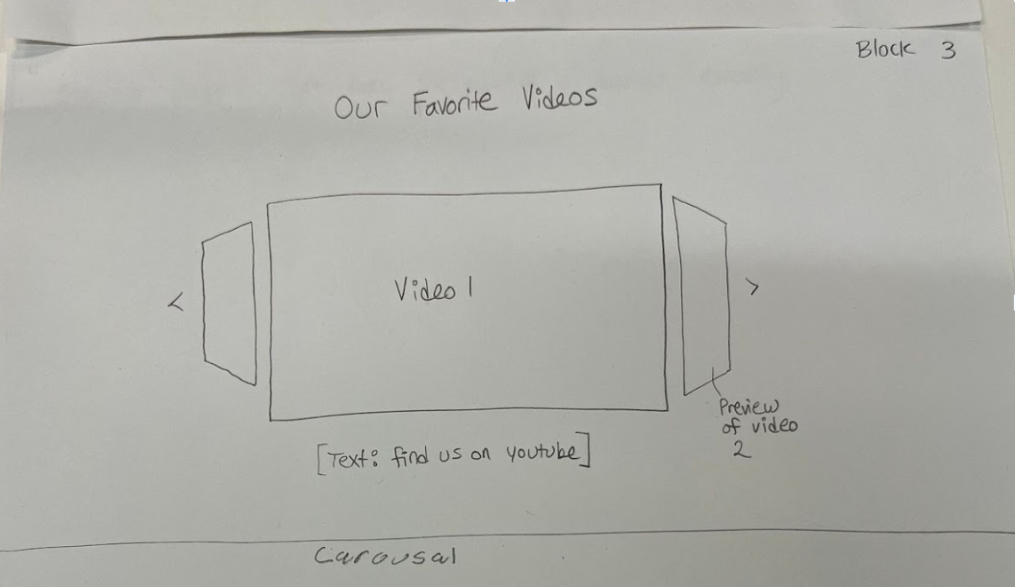 Block 3
Our Favorite Videos
Video 1
<
>
Preview
of video
2
[Text: find us on youtube]
Carousal